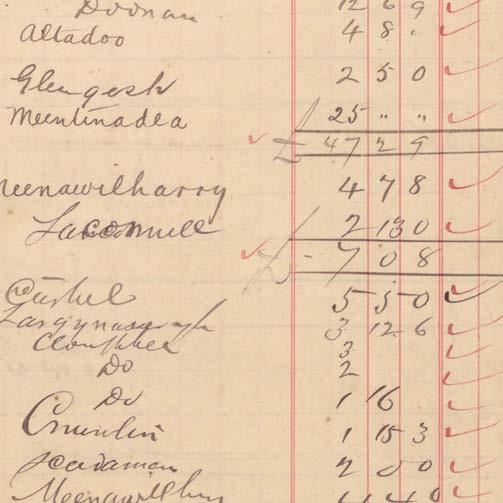 Doonan 12 6 9
Altadoo 4 8 "
Glengesh 2 5 0
Meentinadea 25 " "
£ 47 2 9
Meenawilharry 4 7 8
Laconnell 2 13 0
£ - 7 0 8
Cashel 5 5 0
Largynasearagh 3 12 6
3
Do 2
Do 1 16
Crumlin 1 15 3
Scadaman 2 5 0